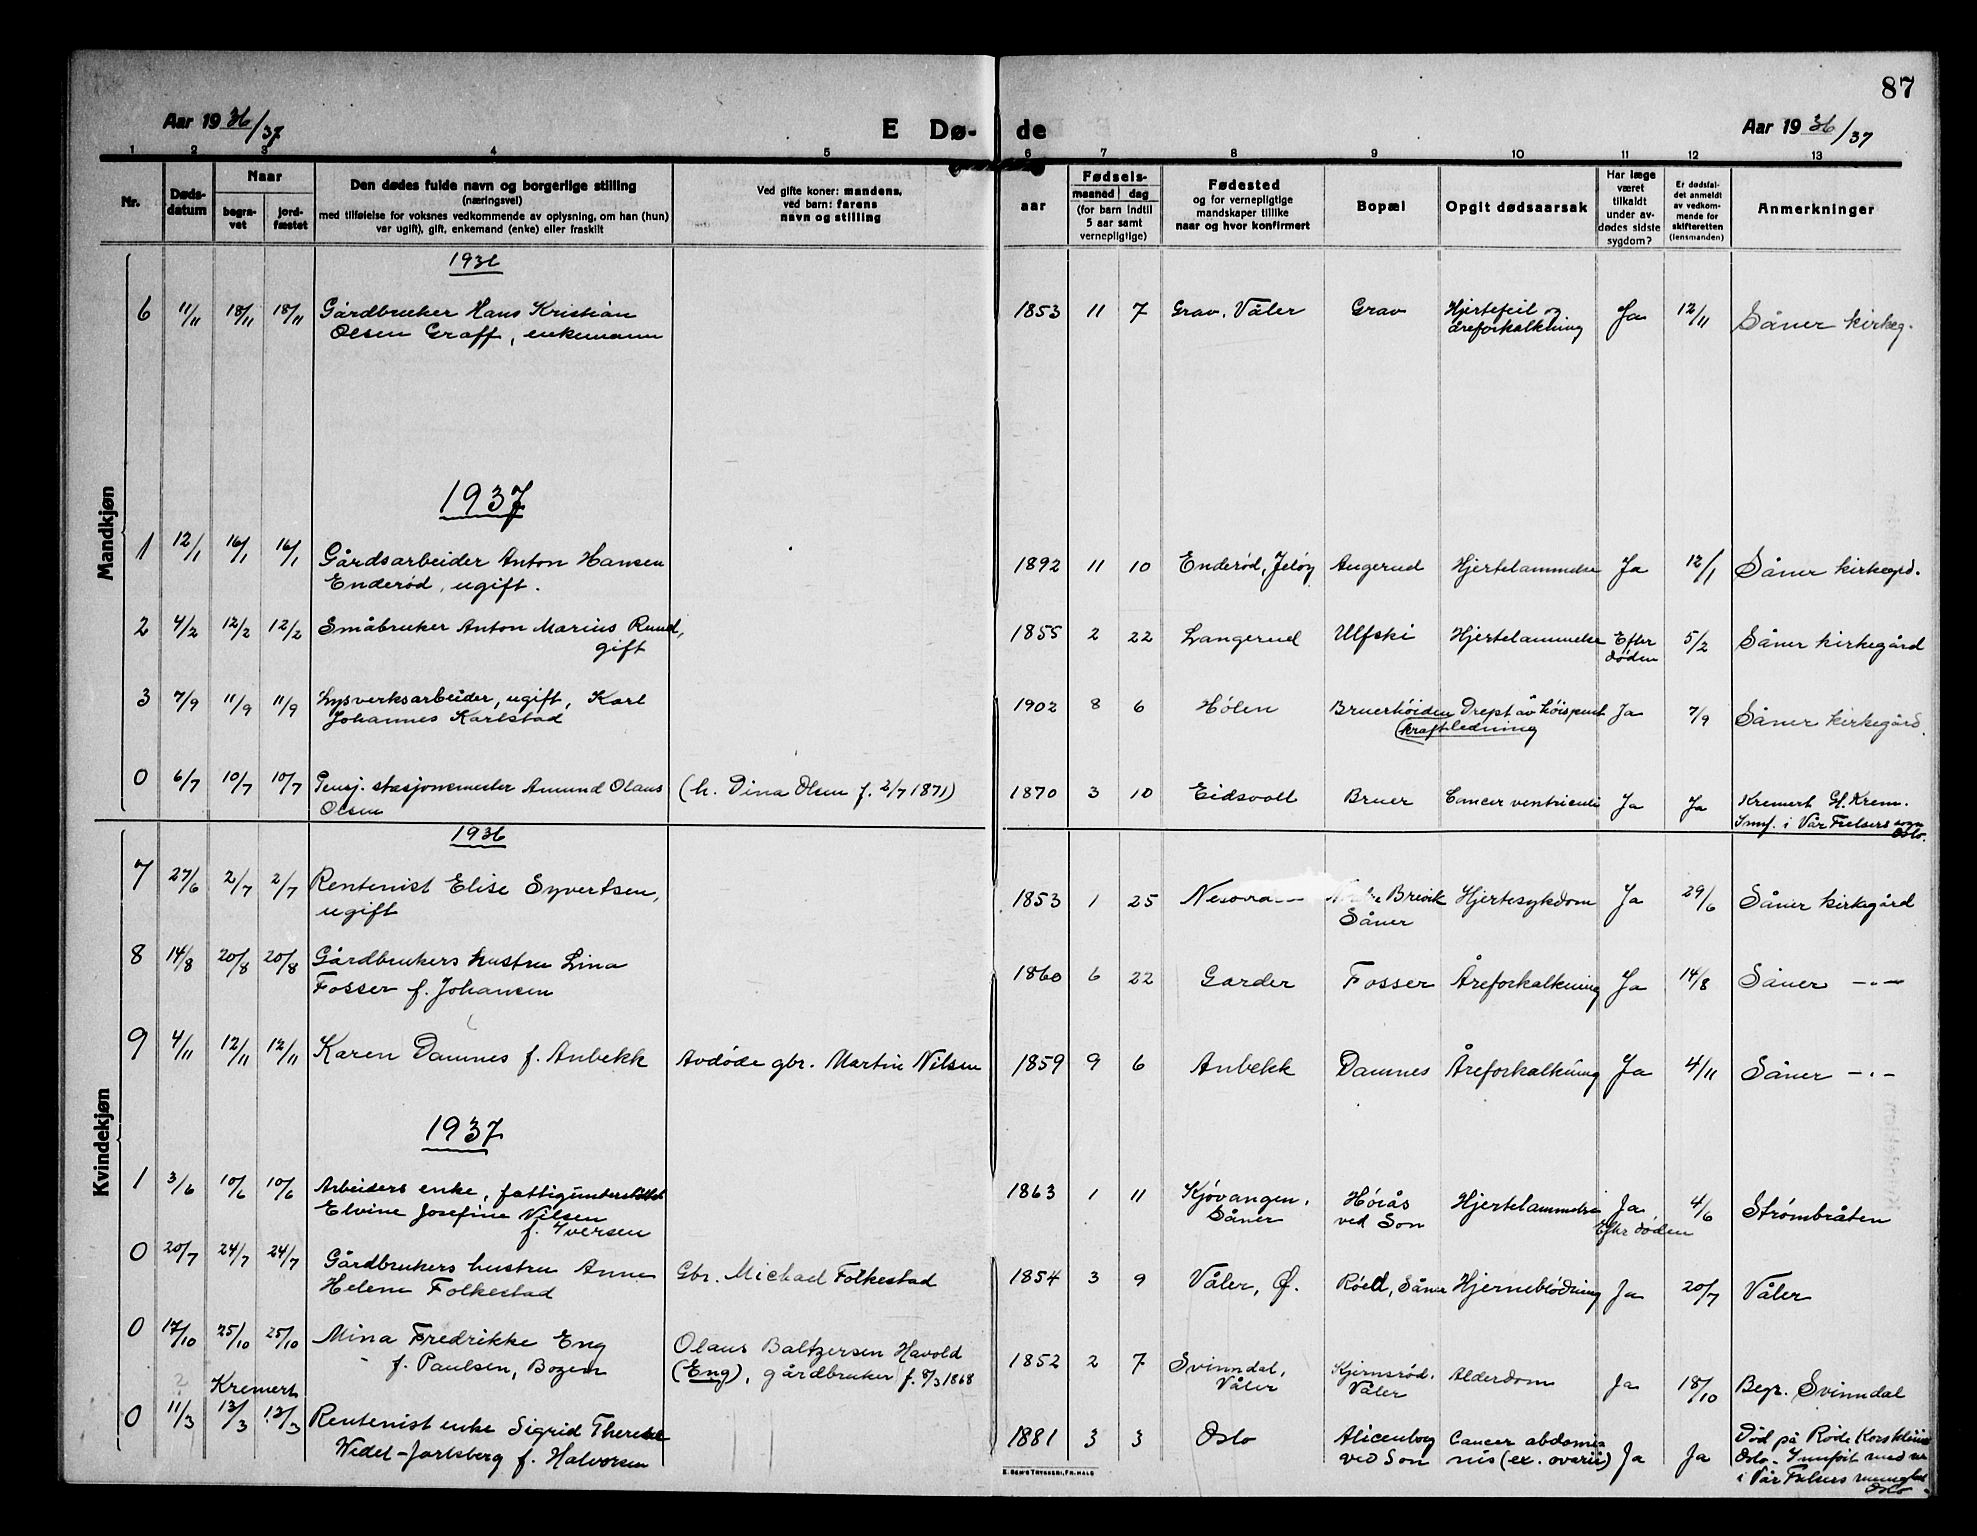 87
Aar 1936/37 E Dø- de Aar 1936/37
1 2 3 4 5 6 7 8 9 10 11 12 13
Nr.
Døds-
datum
Naar
begra-
vet
jord-
fæstet
Den dødes fulde navn og borgerlige stilling
(næringsvei)
med tilføielse for voksnes vedkommende av oplysning, om han (hun)
var ugift), gift, enkemand (enke) eller fraskilt
Ved gifte koner: mandens,
ved barn: farens
navn og stilling
aar
Fødsels-
maaned dag
(for barn indtil
5 aar samt
vernepligtige)
Fødested
og for vernepligtige
mandskaper tillike
naar og hvor konfirmert
Bopæl
Opgit dødsaarsak
Har læge
været
tilkaldt
under av-
dødes sidste
sygdom?
Er dødsfal-
det anmeldt
av vedkom-
mende for
skifteretten
(lensmanden)
Anmerkninger
Mandkjøn
1936
6 11/11 18/11 18/11 Gårdbruker Hans Kristian 1853 11 7 Grav, Våler Grav Hjertefeil og Ja 12/11 Såner kirkeg.
Olsen Graff, enkemann åreforkalkning
1937
1 12/1 16/1 16/1 Gårdsarbeider Anton Hansen 1892 11 10 Enderød, Jeløy Augerud Hjertelammelse Ja 12/1 Såner kirkegrd.
Enderød, ugift.
2 4/2 12/2 12/2 Småbruker Anton Marius Ruud, 1855 2 22 Langerud Ulfski Hjertelammelse Efter 5/2 Såner kirkegård
gift døden
3 7/9 11/9 11/9 Lysverksarbeider, ugift, Karl 1902 8 6 Hølen Bruerhøiden Drept av høispent Ja 7/9 Såner kirkegård.
Johannes Karlstad kraftledning
0 6/7 10/7 10/7 Pensj. stasjonsmester Amund Olaus (h. Dina Olsen f. 2/7 1871) 1870 3 10 Eidsvoll Bruer Cancer ventriculi Ja Ja Kremert Gl. Krem.
Olsen Innf. i Vår Frelsers sogn
Oslo.
Kvindekjøn
1936
7 27/6 2/7 2/7 Rentenist Elise Syvertsen, 1853 1 25 Brevik Hjertesykdom Ja 29/6 Såner kirkegård
ugift Såner
8 14/8 20/8 20/8 Gårdbrukers hustru Lina 1860 6 22 Garder Fosser Åreforkalkning Ja 14/8 Såner —"—
Fosser f. Johansen
9 4/11 12/11 12/11 Karen Damnes f. Anbekk Avdøde gbr. Martin Nilsen 1859 9 6 Anbekk Damnes Åreforkalkning Ja 4/11 Såner —"—
1937
1 3/6 10/6 10/6 Arbeiders enke, fattigunderstøttet 1863 1 11 Kjøvangen, Høiås Hjertelammelse Ja 4/6 Strømbråten
Elvine Josefine Nilsen Såner ved Son Efter døden
f. Iversen
0 20/7 24/7 24/7 Gårdbrukers hustru Anne Gbr. Michael Folkestad 1854 3 9 Våler, Ø. Røed, Såner Hjerneblødning Ja 20/7 Våler
Helene Folkestad
0 17/10 25/10 25/10 Mina Fredrikke Eng Olaus Baltzersen Havold 1852 2 7 Svinndal, Kjernsrød, Alderdom Ja 18/10 Begr. Svinndal
f. Paulsen, Bozem (Eng), gårdbruker f. 8/3 1868 Våler Våler
2 Kremert
0 11/3 13/3 13/3 Rentenist enke Sigrid Therese 1881 3 3 Oslo Alicenborg Cancer abdomi- Ja Ja Død på Røde Kors klinik
Wedel-Jarlsberg f. Halvorsen ved Son nis (ex. ovarii) Oslo.
i Vår Frelsers
Oslo
E. SEM'S TRYKKERI, FR.HALD